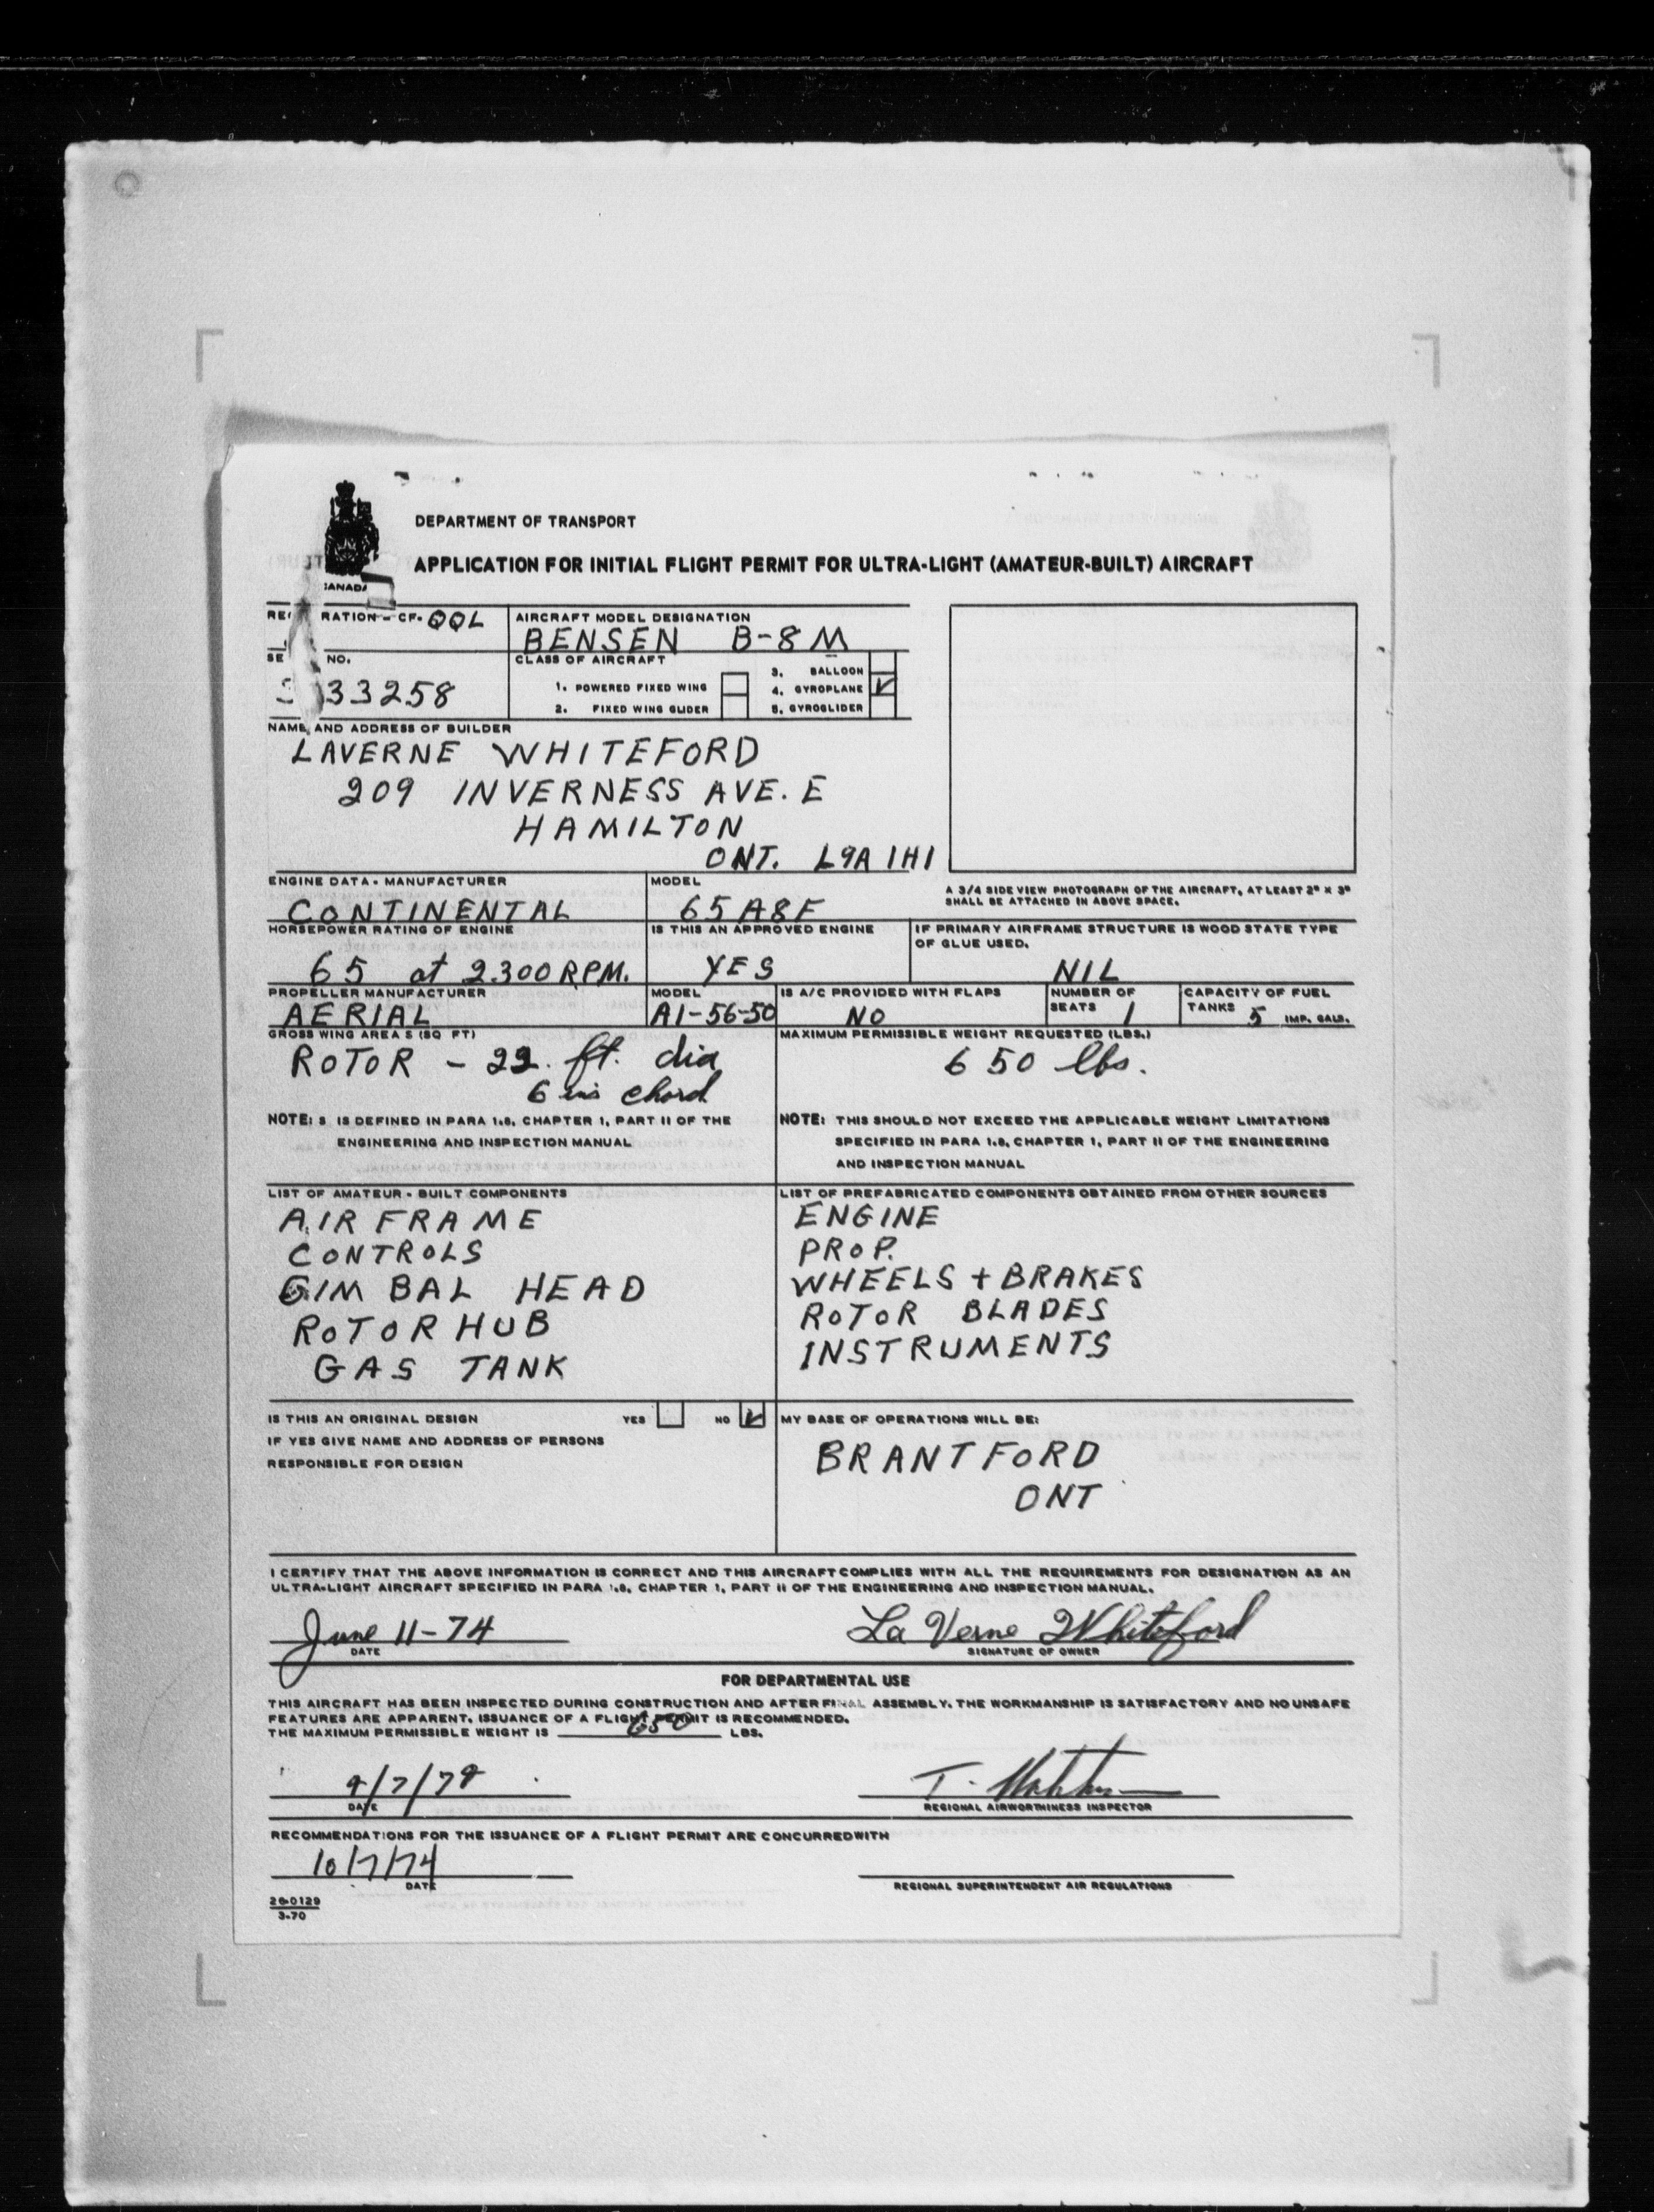 DEPARTMENT OF TRANSPORT
APPLICATION FOR INITIAL FLIGHT PERMIT FOR ULTRA-LIGHT (AMATEUR-BUILT) AIRCRAFT
CANADA
RATION - CF- QQL
AIRCRAFT MODEL DESIGNATION
BENSEN B-8M
SE NO.
33258
CLASS OF AIRCRAFT
1. POWERED FIXED WING
2. FIXED WING GLIDER
3. BALLOON
4. GYROPLANE ✓
5. GYROGLIDER
NAME AND ADDRESS OF BUILDER
LAVERNE WHITEFORD
209 INVERNESS AVE. E
HAMILTON
ONT. L9A 1H1
A 3/4 SIDE VIEW PHOTOGRAPH OF THE AIRCRAFT, AT LEAST 2" X 3"
SHALL BE ATTACHED IN ABOVE SPACE.
ENGINE DATA - MANUFACTURER
CONTINENTAL
MODEL
65A8F
HORSEPOWER RATING OF ENGINE
65 at 2300 RPM.
IS THIS AN APPROVED ENGINE
YES
IF PRIMARY AIRFRAME STRUCTURE IS WOOD STATE TYPE
OF GLUE USED.
NIL
PROPELLER MANUFACTURER
AERIAL
MODEL
A1-56-50
IS A/C PROVIDED WITH FLAPS
NO
NUMBER OF
SEATS 1
CAPACITY OF FUEL
TANKS 5 IMP. GALS.
GROSS WING AREA S (SQ FT)
ROTOR - 22. ft. dia
6 ins chord
NOTE: S IS DEFINED IN PARA 1.8, CHAPTER 1, PART II OF THE
ENGINEERING AND INSPECTION MANUAL
MAXIMUM PERMISSIBLE WEIGHT REQUESTED (LBS.)
650 lbs.
NOTE: THIS SHOULD NOT EXCEED THE APPLICABLE WEIGHT LIMITATIONS
SPECIFIED IN PARA 1.8, CHAPTER 1, PART II OF THE ENGINEERING
AND INSPECTION MANUAL
LIST OF AMATEUR - BUILT COMPONENTS
AIR FRAME
CONTROLS
GIMBAL HEAD
ROTOR HUB
GAS TANK
LIST OF PREFABRICATED COMPONENTS OBTAINED FROM OTHER SOURCES
ENGINE
PROP.
WHEELS + BRAKES
ROTOR BLADES
INSTRUMENTS
IS THIS AN ORIGINAL DESIGN YES NO ✓
IF YES GIVE NAME AND ADDRESS OF PERSONS
RESPONSIBLE FOR DESIGN
MY BASE OF OPERATIONS WILL BE:
BRANTFORD
ONT
I CERTIFY THAT THE ABOVE INFORMATION IS CORRECT AND THIS AIRCRAFT COMPLIES WITH ALL THE REQUIREMENTS FOR DESIGNATION AS AN
ULTRA-LIGHT AIRCRAFT SPECIFIED IN PARA 1.8, CHAPTER 1, PART II OF THE ENGINEERING AND INSPECTION MANUAL.
June 11-74
DATE
La Verne Whiteford
SIGNATURE OF OWNER
FOR DEPARTMENTAL USE
THIS AIRCRAFT HAS BEEN INSPECTED DURING CONSTRUCTION AND AFTER FINAL ASSEMBLY. THE WORKMANSHIP IS SATISFACTORY AND NO UNSAFE
FEATURES ARE APPARENT. ISSUANCE OF A FLIGHT PERMIT IS RECOMMENDED.
THE MAXIMUM PERMISSIBLE WEIGHT IS 650 LBS.
DATE
T.
REGIONAL AIRWORTHINESS INSPECTOR
RECOMMENDATIONS FOR THE ISSUANCE OF A FLIGHT PERMIT ARE CONCURRED WITH
10/7/74
DATE
REGIONAL SUPERINTENDENT AIR REGULATIONS
26-0129
3-70